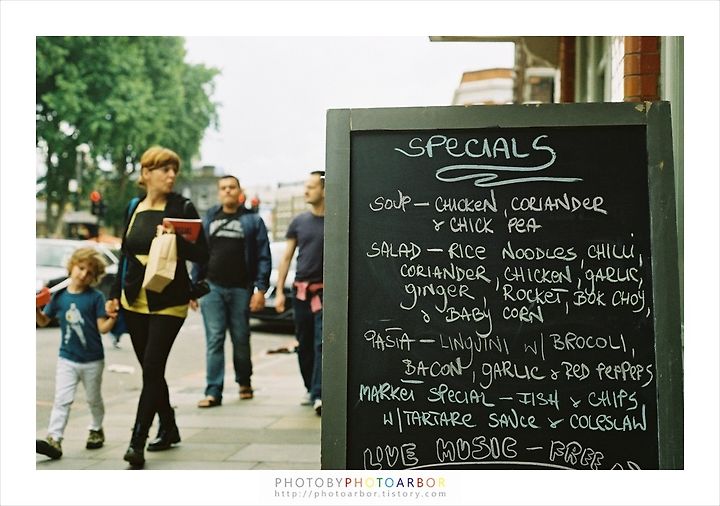 SPECIALS
SOUP – CHICKEN, CORIANDER
& CHICK PEA
SALAD – RICE NOODLES, CHILLI,
CORIANDER, CHICKEN, GARLIC,
GINGER, ROCKET, BOK CHOY,
& BABY CORN
PASTA – LINGUINI W/ BROCOLI,
BACON, GARLIC & RED PEPPERS
MARKET SPECIAL – FISH & CHIPS
W/TARTARE SAUCE & COLESLAW
LIVE MUSIC – FREE
PHOTOBYPHOTOARBOR
http://photoarbor.tistory.com